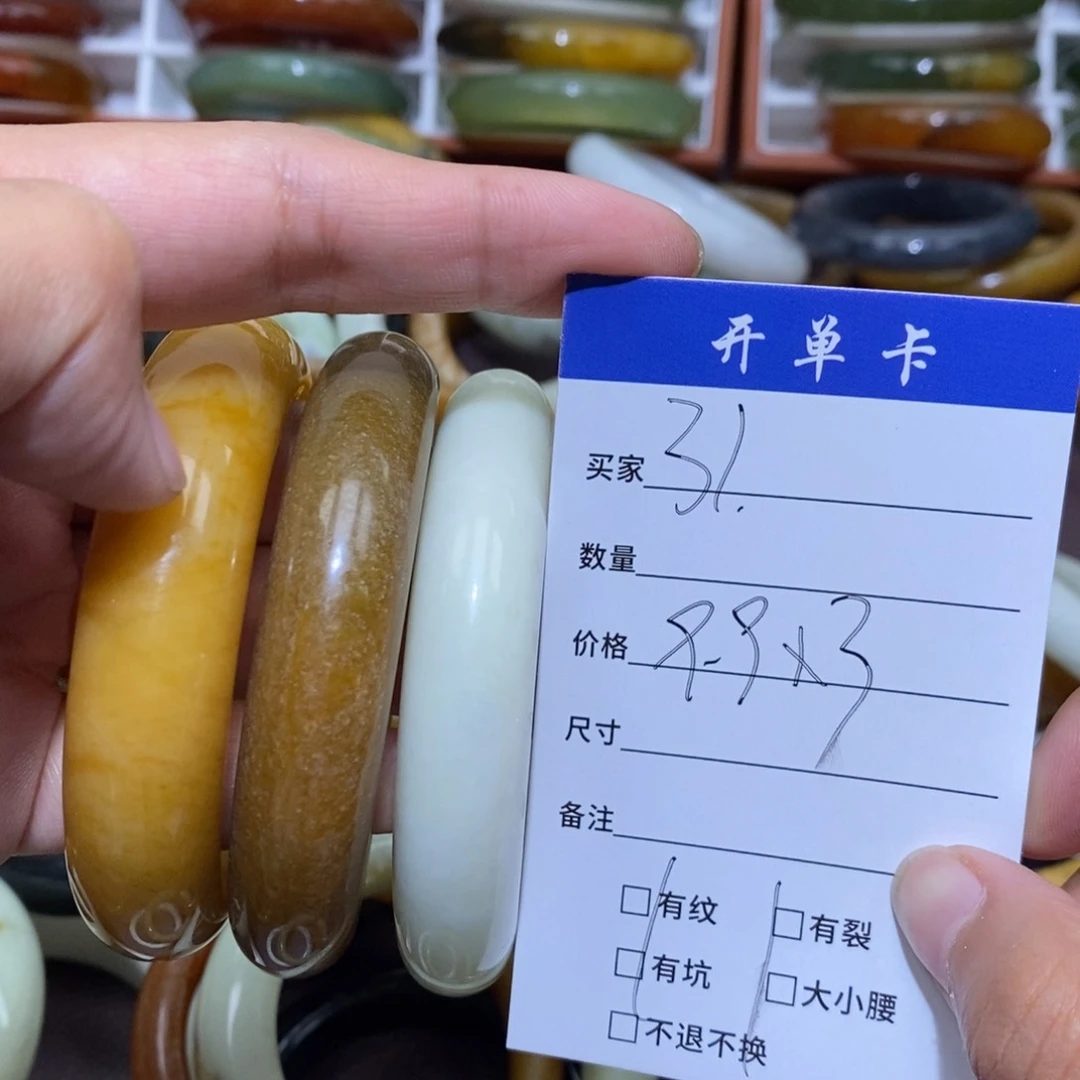 开单卡
买家 31.
数量
价格 9.9x3
尺寸
备注
□有纹 □有裂
□有坑 □大小腰
□不退不换